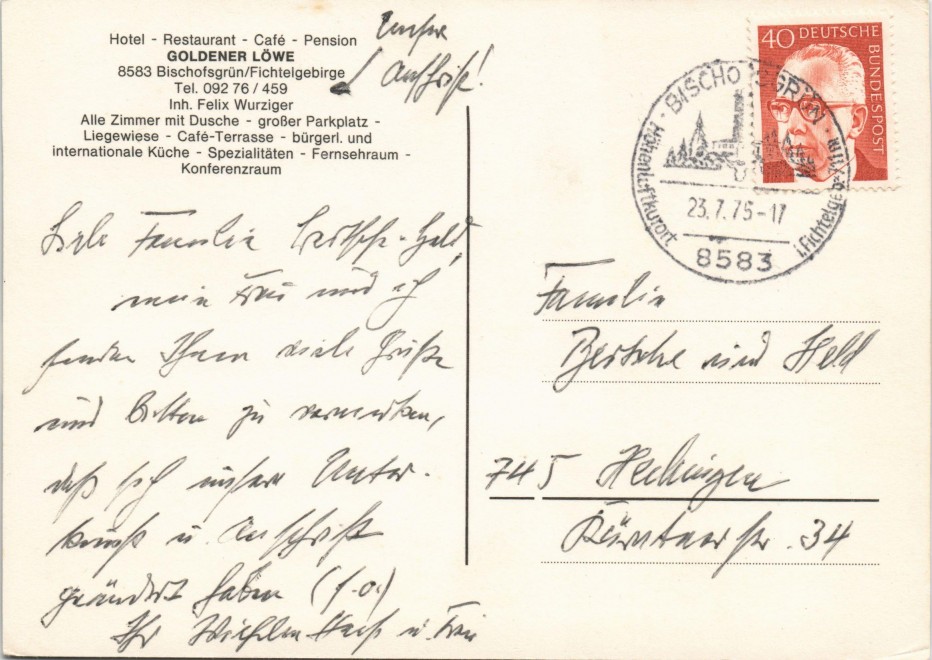 Hotel - Restaurant - Café - Pension
GOLDENER LÖWE
8583 Bischofsgrün/Fichtelgebirge
Tel. 092 76 / 459
Inh. Felix Wurziger
Alle Zimmer mit Dusche - großer Parkplatz -
Liegewiese - Café-Terrasse - bürgerl. und
internationale Küche - Spezialitäten - Fernsehraum -
Konferenzraum
Unsere
Anschrift!
40 DEUTSCHE
BUNDESPOST
BISCHOFSGRÜN
Höhenluftkurort
i. Fichtelgeb.
23.7.75-17
8583
Liebe Familie Bertsche-Held,
meine Frau und ich
senden Ihnen viele Grüße
und bitten zu vermerken,
daß sich unsere Unter-
kunft u. Anschrift
geändert haben (s.o.)
Ihr Wilhelm u. Frau
Familie
Bertsche und Held
745 Hechingen
Kürntnerstr. 34